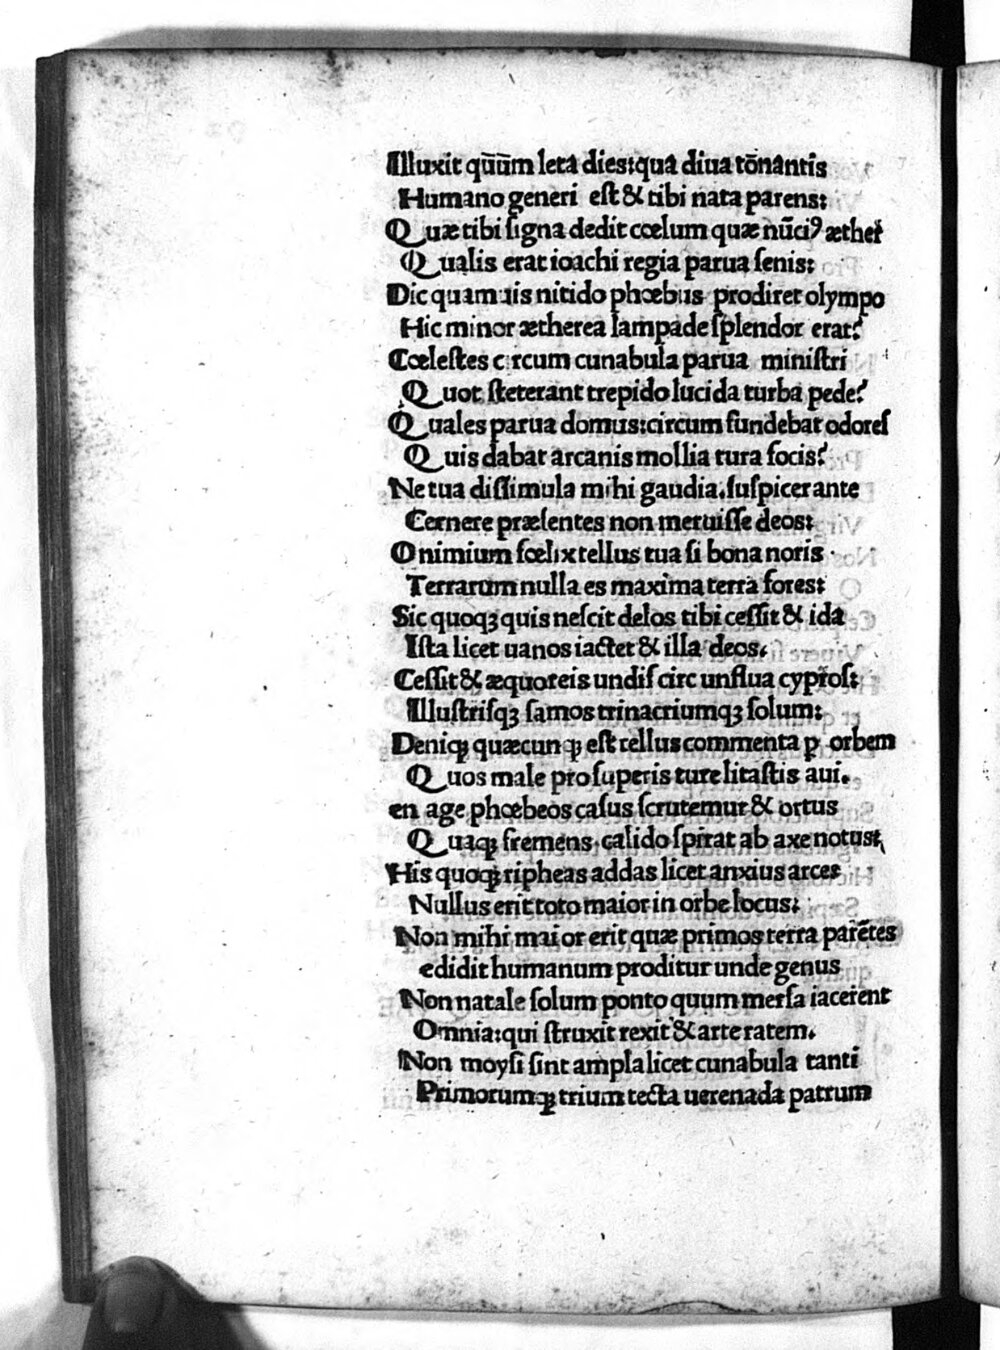 Illuxit qūūm leta dies:qua diua tōnantis
Humano generi est & tibi nata parens:
Quæ tibi signa dedit cœlum quæ nūciꝰ æther
Qualis erat ioachi regia parua senis:
Dic quamuis nitido phœbus prodiret olympo
Hic minor ætherea lampade splendor erat?
Cœlestes circum cunabula parua ministri
Quot steterant trepido lucida turba pede?
Quales parua domus:circum fundebat odores
Quis dabat arcanis mollia tura focis?
Ne tua dissimula mihi gaudia.suspicer ante
Cernere præsentes non meruisse deos:
O nimium fœlix tellus tua si bona noris
Terrarum nulla es maxima terra fores:
Sic quoqꝫ quis nescit delos tibi cessit & ida
Ista licet uanos iactet & illa deos.
Cessit & æquoreis undis circunflua cypros:
Illustrisqꝫ samos trinacriumqꝫ solum:
Deniqꝫ quæcunqꝫ est tellus commenta ꝑ orbem
Quos male pro superis ture litastis aui.
en age phœbeos casus scrutemur & ortus
Quaqꝫ fremens calido spirat ab axe notus:
His quoqꝫ ripheas addas licet anxius arces
Nullus erit toto maior in orbe locus:
Non mihi maior erit quæ primos terra parētes
edidit humanum proditur unde genus
Non natale solum ponto quum mersa iacerent
Omnia:qui struxit rexit & arte ratem.
Non moysi sint ampla licet cunabula tanti
Primorumqꝫ trium tecta uerenada patrum